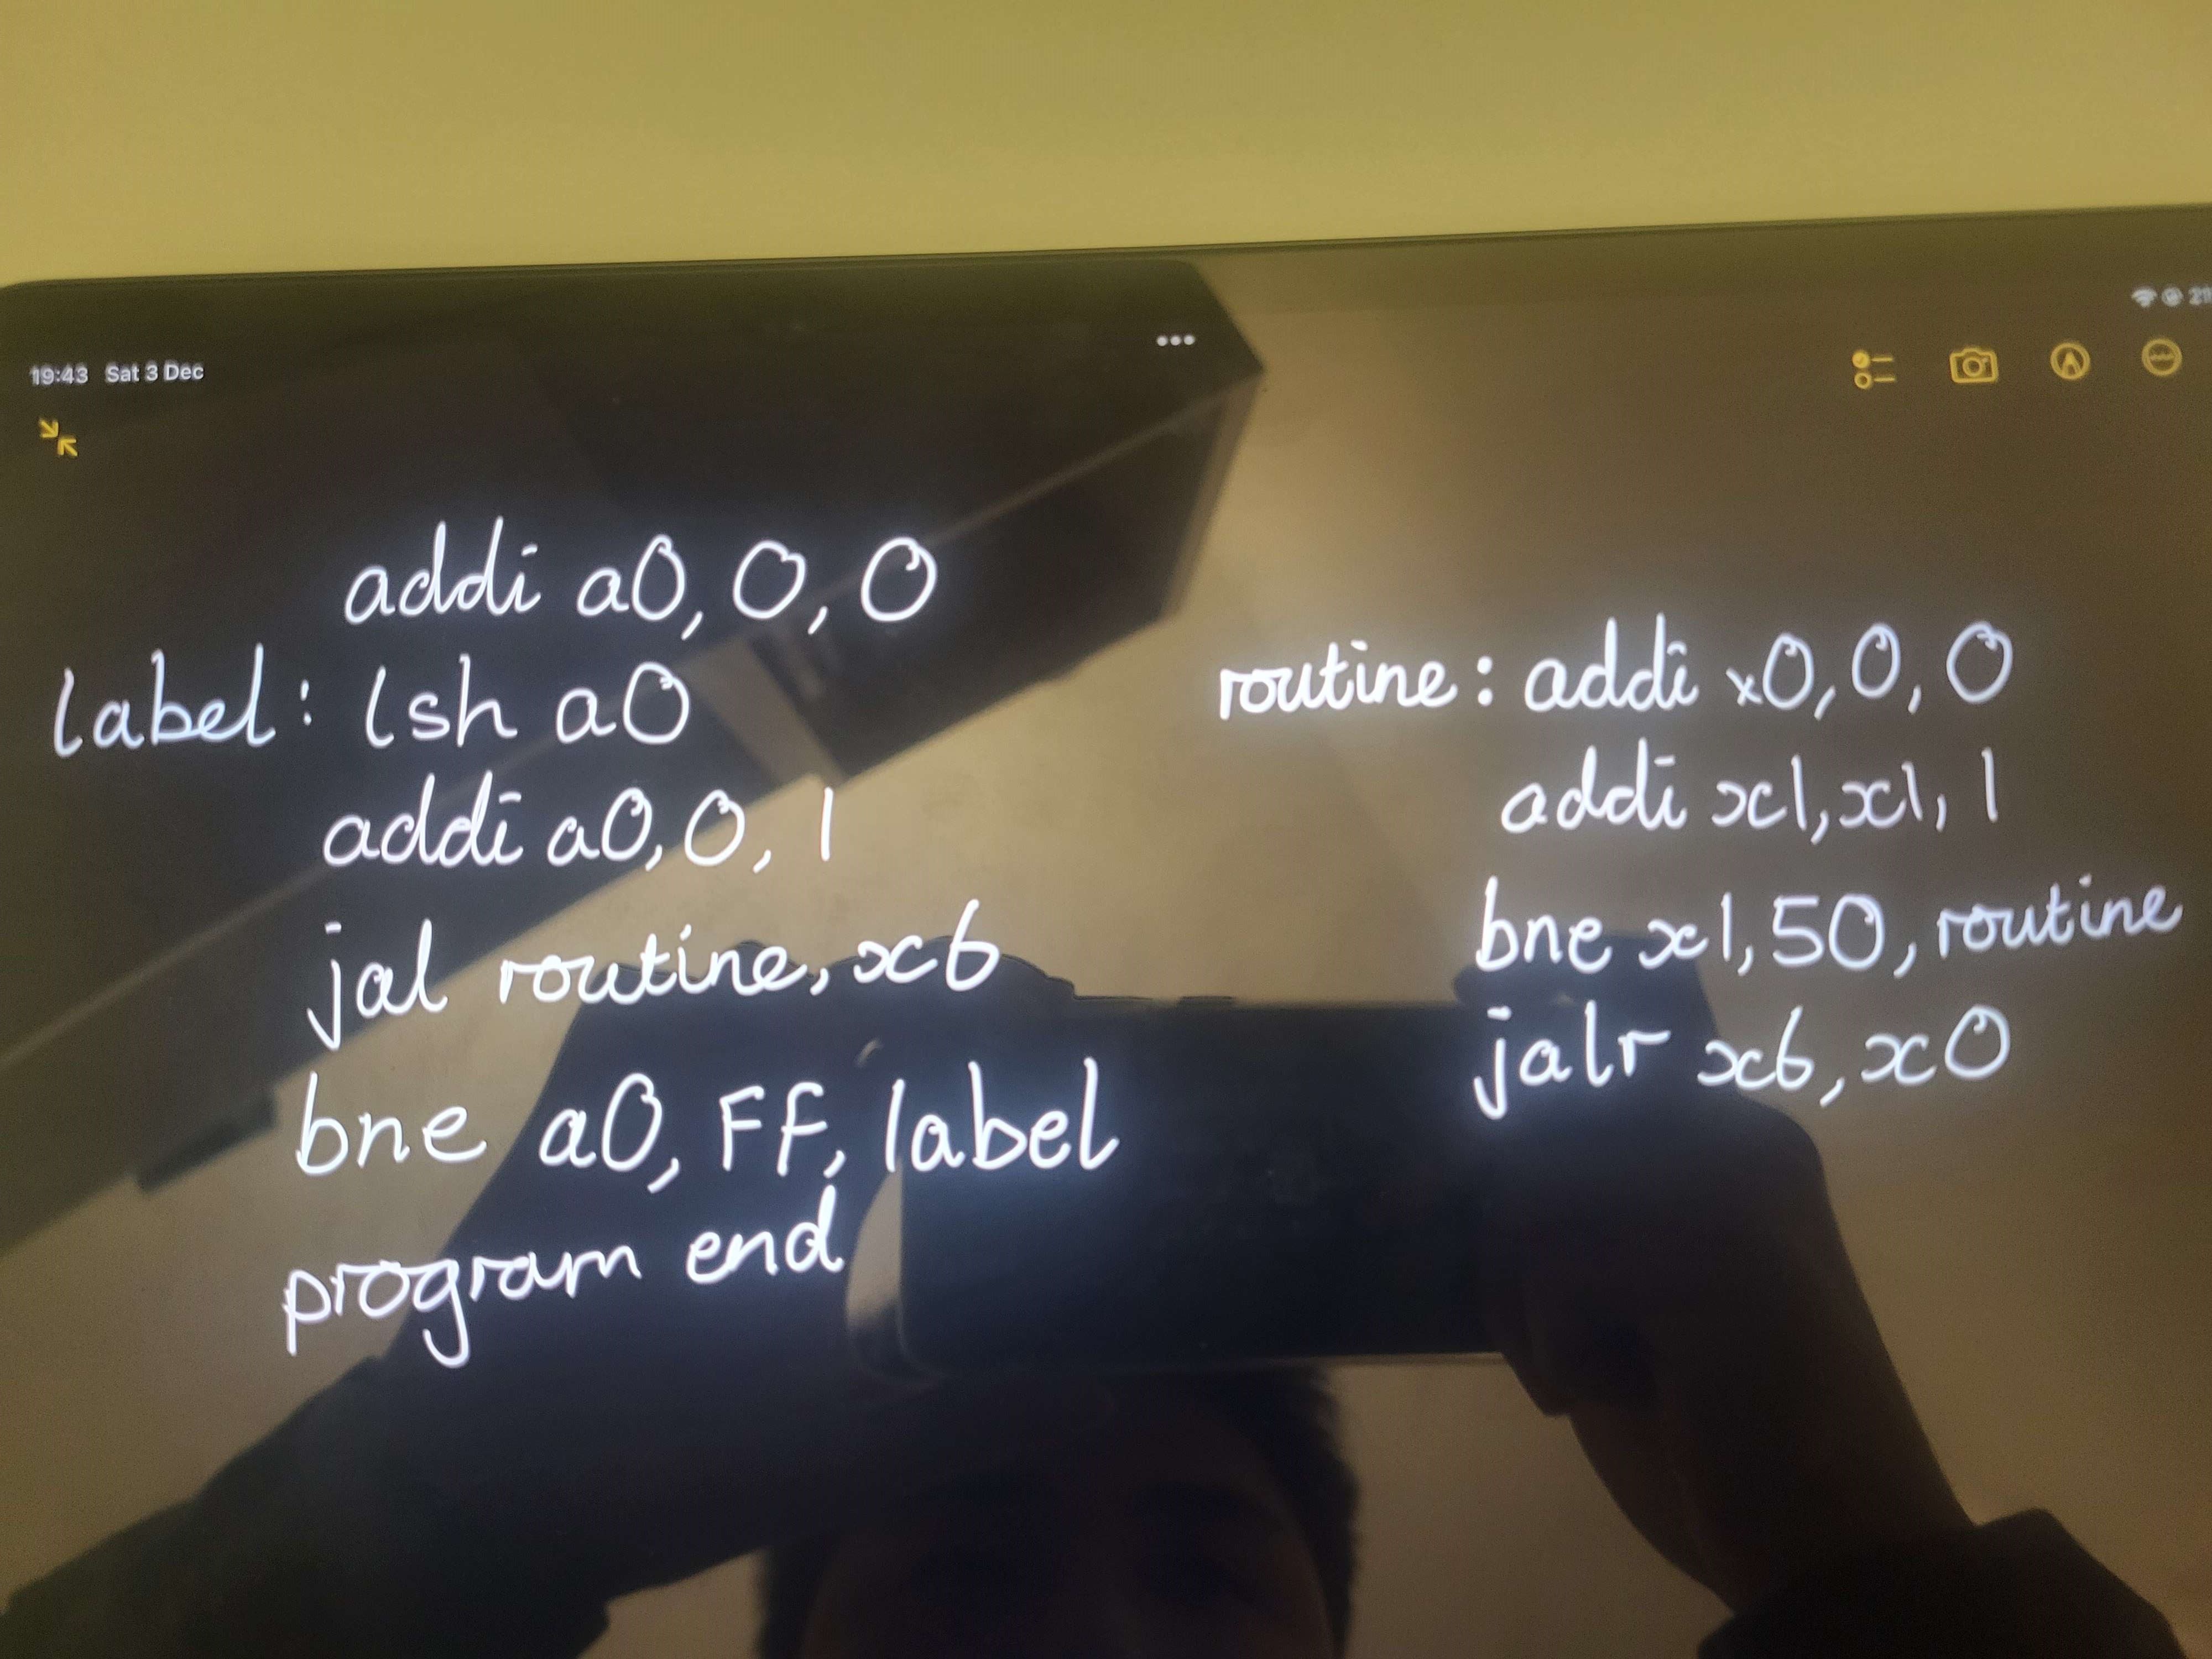 19:43 Sat 3 Dec
addi a0, 0, 0
label: lsh a0
addi a0, 0, 1
jal routine, x6
bne a0, FF, label
program end
routine: addi x0, 0, 0
addi x1, x1, 1
bne x1, 50, routine
jalr x6, x0